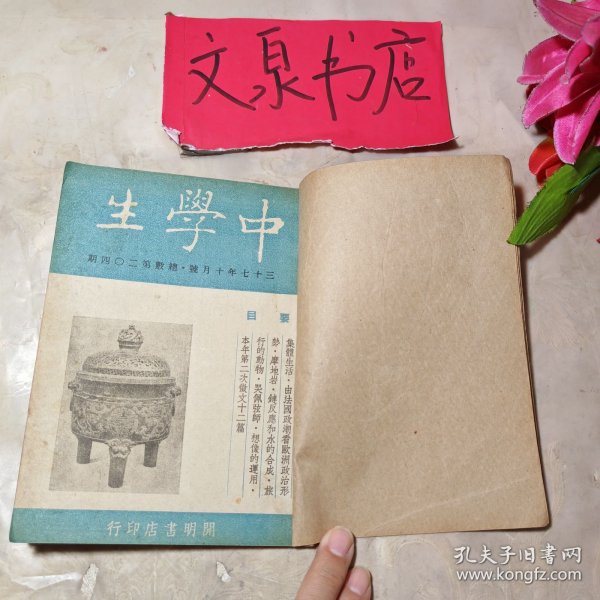 文泉书店
中學生
三十七年十月號·總數第二〇四期
要目
集體生活·由法國政潮看歐洲政治形
勢·摩地岩·鏈反應和水的合成·旅
行的動物·哭佩弦師·想像的運用·
本年第二次徵文十二篇
開明書店印行
孔夫子旧书网
www.kongfz.com